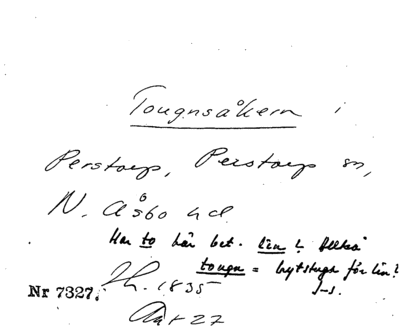 Tougnsåkern i
Perstorp, Perstorp sn,
N. Åsbo hd
Har to här bet. lin? Alltså
tougn = brytstuga för lin?
J-s.
Nr 7327. Th. 1835
Akt 27